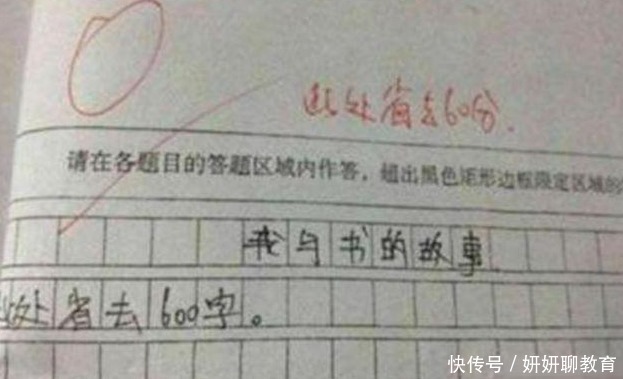 此处省去60分.
请在各题目的答题区域内作答，超出黑色矩形边框限定区域的
我与书的故事
此处省去600字。
快传号／妍妍聊教育